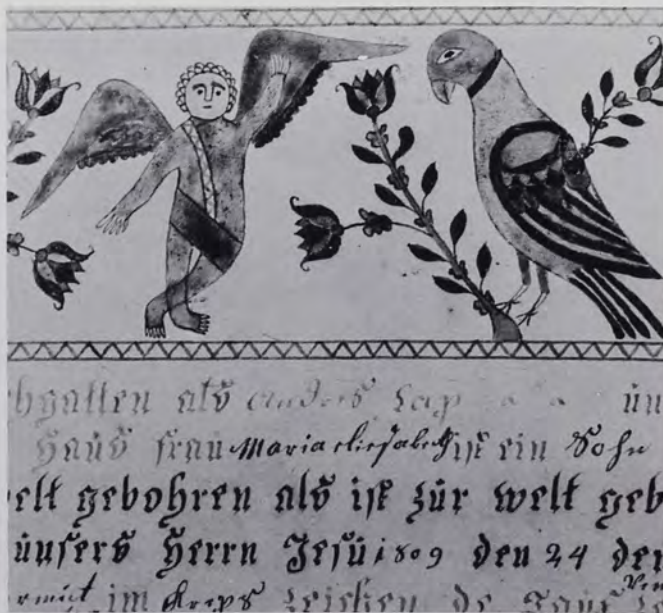 ehgatten als Anders
Haus frau Maria eliesabeth ist ein Sohn
welt gebohren als ist zür welt geb
ünsers Herrn Jesü 1809 den 24 der
im Kreps zeichen de